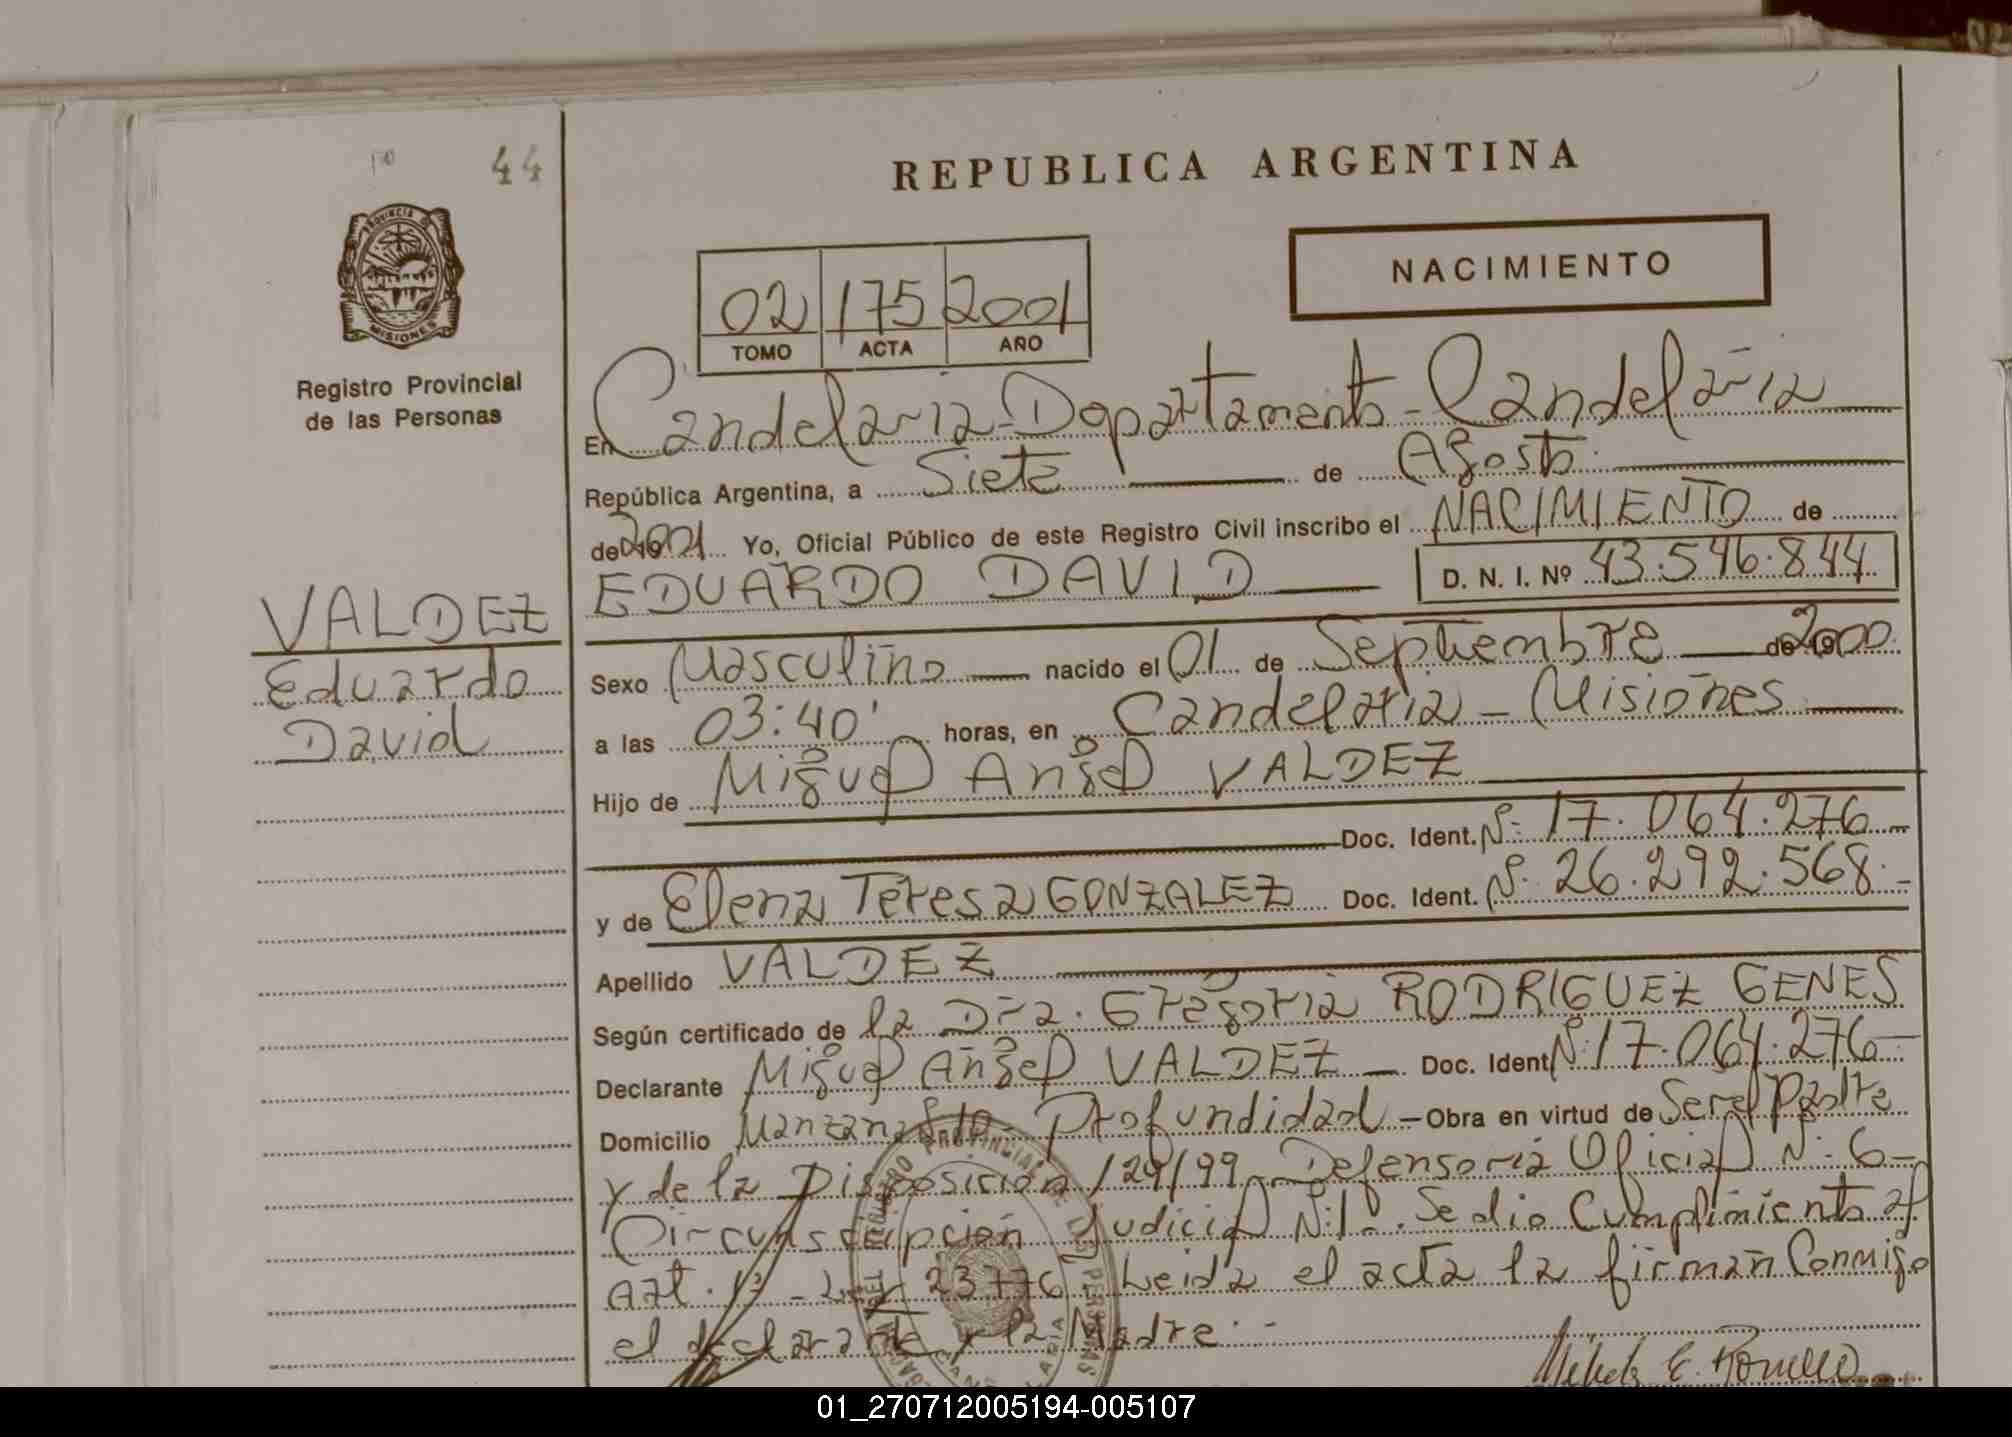 44
REPUBLICA ARGENTINA
PROVINCIA DE
MISIONES
NACIMIENTO
02 175 2001
TOMO ACTA AÑO
Registro Provincial
de las Personas
En Candelaria - Departamento - Candelaria
República Argentina, a Siete de Agosto
de 2001 Yo, Oficial Público de este Registro Civil inscribo el NACIMIENTO de
EDUARDO DAVID D. N. I. Nº 43.546.844
VALDEZ
Eduardo
David
Sexo Masculino nacido el 01 de Septiembre de 2000
a las 03:40' horas, en Candelaria - Misiones
Hijo de Miguel Angel VALDEZ
Doc. Ident. Nº 17.064.276
y de Elena Teresa GONZALEZ Doc. Ident. Nº 26.292.568.-
Apellido VALDEZ
Según certificado de la Dra. Gregoria RODRIGUEZ GENES
Declarante Miguel Angel VALDEZ Doc. Ident Nº 17.064.276-
Domicilio Manzana Profundidad - Obra en virtud de Ser el Padre
y de la Disposición 129/99 - Defensoria Oficial Nº 6-
Circunscripción Judicial Nº 1. Se dio Cumplimiento al
Art. - Ley 23776 Leida el acta la firman Conmigo
el declarante y la Madre.-
01_270712005194-005107